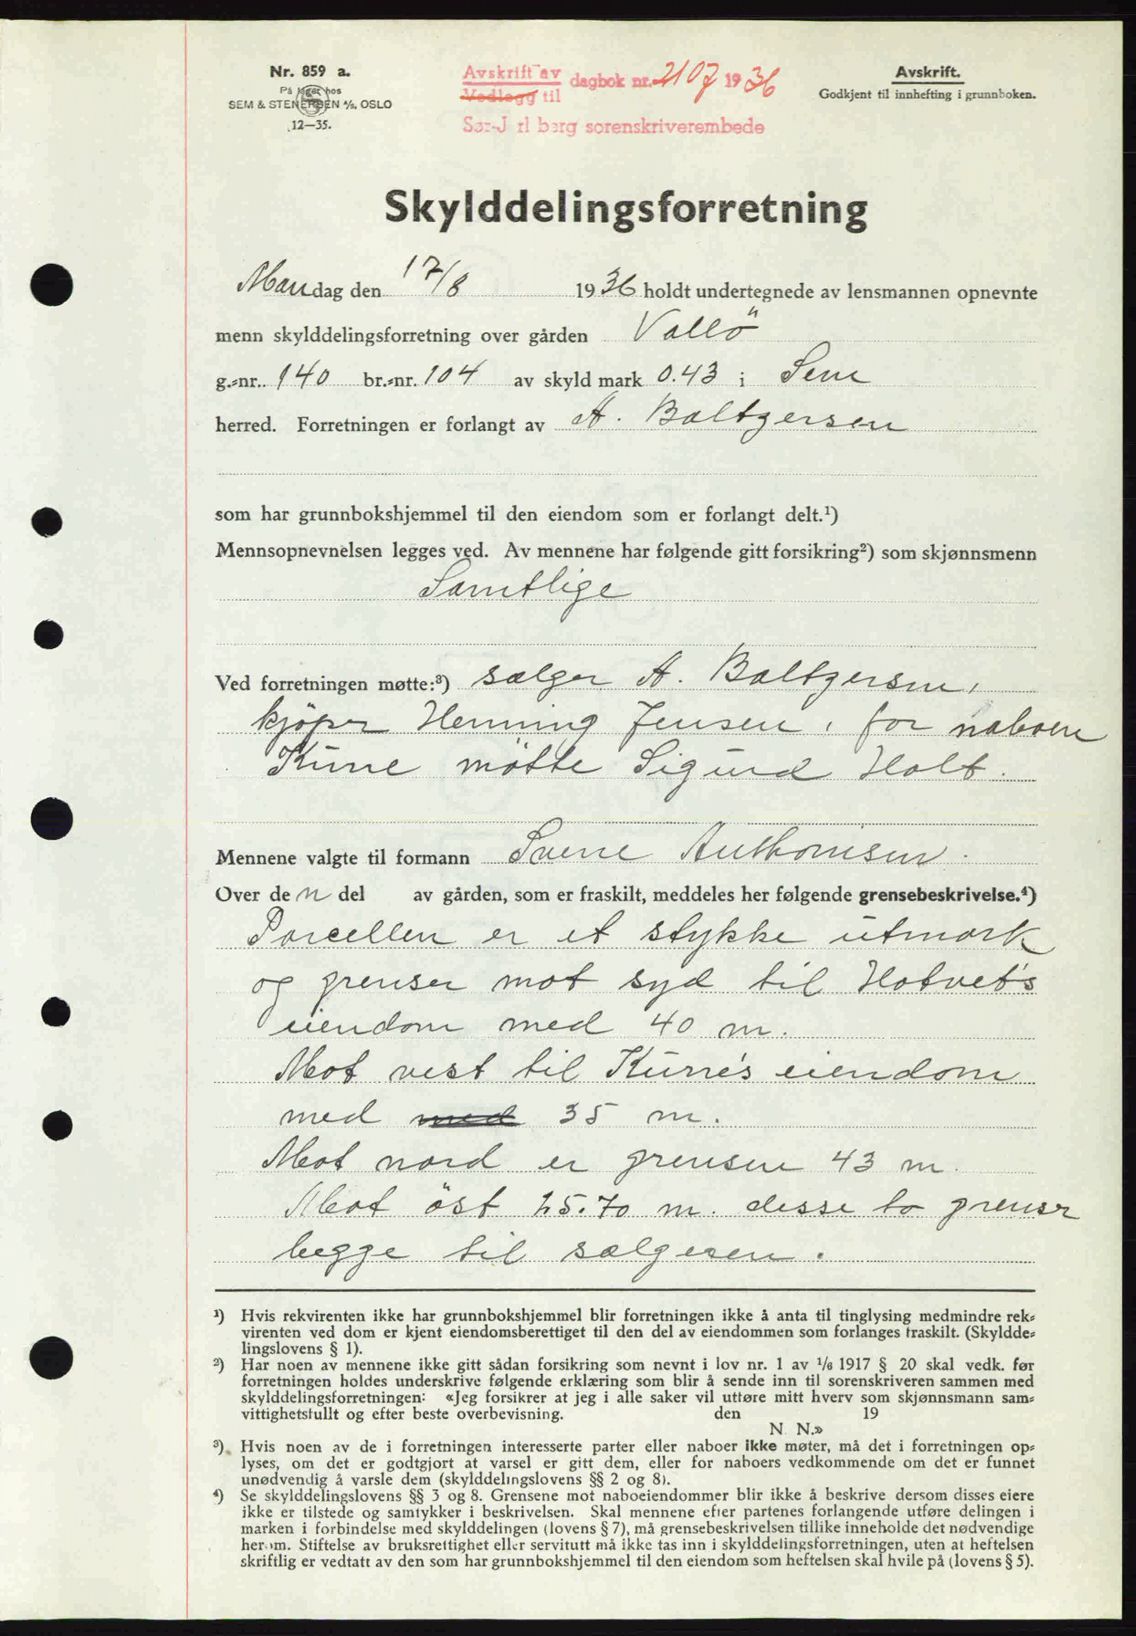 Nr. 859 a.
På lager hos
SEM & STENERSEN A/S, OSLO
12—35.
Avskrift av
Vedlegg til
dagbok nr. 2107 1936
Sør-J rl berg sorenskriverembede
Avskrift.
Godkjent til innhefting i grunnboken.
Skylddelingsforretning
Mandag den 17/8 1936 holdt undertegnede av lensmannen opnevnte
menn skylddelingsforretning over gården Vallö
g.=nr. 140 br.=nr. 104 av skyld mark 0.43 i Sem
herred. Forretningen er forlangt av A. Baltzersen
som har grunnbokshjemmel til den eiendom som er forlangt delt.¹)
Mennsopnevnelsen legges ved. Av mennene har følgende gitt forsikring²) som skjønnsmenn
Samtlige
Ved forretningen møtte:³) sælger A. Baltzersen,
kjöper Henning Jensen, for naboen
Kürre mötte Sigurd Holt.
Mennene valgte til formann Sverre Anthonisen.
Over den del av gården, som er fraskilt, meddeles her følgende grensebeskrivelse.⁴)
Parcellen er et stykke utmark
og grenser mot syd til Hotvet's
eiendom med 40 m.
Mot vest til Kürre's eiendom
med med 35 m.
Mot nord er grensen 43 m.
Mot öst 25.70 m. desse to grenser
begge til sælgeren.
¹) Hvis rekvirenten ikke har grunnbokshjemmel blir forretningen ikke å anta til tinglysing medmindre rek=
virenten ved dom er kjent eiendomsberettiget til den del av eiendommen som forlanges fraskilt. (Skyldde=
lingslovens § 1).
²) Har noen av mennene ikke gitt sådan forsikring som nevnt i lov nr. 1 av ¹/₆ 1917 § 20 skal vedk. før
forretningen holdes underskrive følgende erklæring som blir å sende inn til sorenskriveren sammen med
skylddelingsforretningen: «Jeg forsikrer at jeg i alle saker vil utføre mitt hverv som skjønnsmann sam=
vittighetsfullt og efter beste overbevisning. den 19
N. N.»
³) Hvis noen av de i forretningen interesserte parter eller naboer ikke møter, må det i forretningen op=
lyses, om det er godtgjort at varsel er gitt dem, eller for naboers vedkommende om det er funnet
unødvendig å varsle dem (skylddelingslovens §§ 2 og 8).
⁴) Se skylddelingslovens §§ 3 og 8. Grensene mot naboeiendommer blir ikke å beskrive dersom disses eiere
ikke er tilstede og samtykker i beskrivelsen. Skal mennene efter partenes forlangende utføre delingen i
marken i forbindelse med skylddelingen (lovens § 7), må grensebeskrivelsen tillike inneholde det nødvendige
herom. Stiftelse av bruksrettighet eller servitutt må ikke tas inn i skylddelingsforretningen, uten at heftelsen
skriftlig er vedtatt av den som har grunnbokshjemmel til den eiendom som heftelsen skal hvile på (lovens § 5).